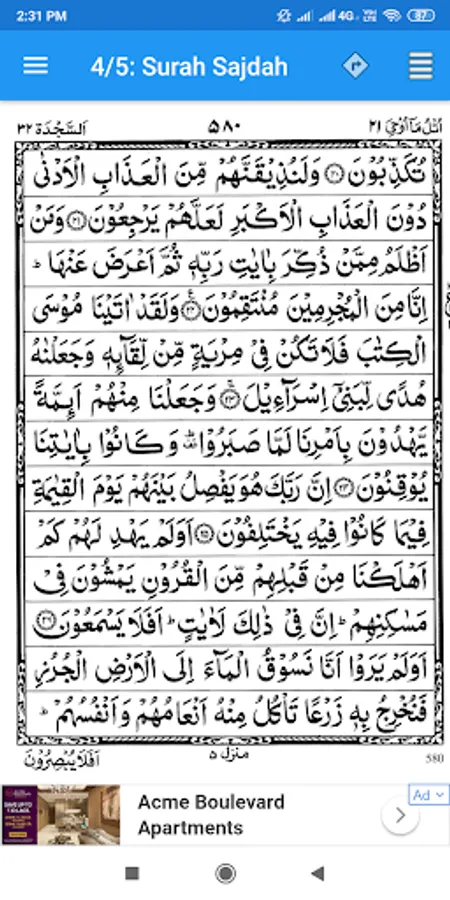 2:31 PM 4G VoLTE 87
4/5: Surah Sajdah
اَلسَّجْدَة ٣٢ ٥٨٠ اُتْلُ مَآ اُوْحِیَ ٢١
تُكَذِّبُوْنَ ﴿٢٠﴾ وَلَنُذِيْقَنَّهُمْ مِّنَ الْعَذَابِ الْاَدْنٰى
دُوْنَ الْعَذَابِ الْاَكْبَرِ لَعَلَّهُمْ يَرْجِعُوْنَ ﴿٢١﴾ وَمَنْ
اَظْلَمُ مِمَّنْ ذُكِّرَ بِاٰيٰتِ رَبِّهٖ ثُمَّ اَعْرَضَ عَنْهَا ؕ
اِنَّا مِنَ الْمُجْرِمِيْنَ مُنْتَقِمُوْنَ ﴿٢٢﴾ وَلَقَدْ اٰتَيْنَا مُوْسَى
الْكِتٰبَ فَلَا تَكُنْ فِيْ مِرْيَةٍ مِّنْ لِّقَآئِهٖ وَجَعَلْنٰهُ
هُدًى لِّبَنِيْٓ اِسْرَآءِيْلَ ﴿٢٣﴾ وَجَعَلْنَا مِنْهُمْ اَئِمَّةً
يَّهْدُوْنَ بِاَمْرِنَا لَمَّا صَبَرُوْا ؕ وَكَانُوْا بِاٰيٰتِنَا
يُوْقِنُوْنَ ﴿٢٤﴾ اِنَّ رَبَّكَ هُوَ يَفْصِلُ بَيْنَهُمْ يَوْمَ الْقِيٰمَةِ
فِيْمَا كَانُوْا فِيْهِ يَخْتَلِفُوْنَ ﴿٢٥﴾ اَوَلَمْ يَهْدِ لَهُمْ كَمْ
اَهْلَكْنَا مِنْ قَبْلِهِمْ مِّنَ الْقُرُوْنِ يَمْشُوْنَ فِيْ
مَسٰكِنِهِمْ ؕ اِنَّ فِيْ ذٰلِكَ لَاٰيٰتٍ ؕ اَفَلَا يَسْمَعُوْنَ ﴿٢٦﴾
اَوَلَمْ يَرَوْا اَنَّا نَسُوْقُ الْمَآءَ اِلَى الْاَرْضِ الْجُرُزِ
فَنُخْرِجُ بِهٖ زَرْعًا تَاْكُلُ مِنْهُ اَنْعَامُهُمْ وَاَنْفُسُهُمْ ؕ
اَفَلَا يُبْصِرُوْنَ منزل ٥ 580
Ad
Acme Boulevard
Apartments